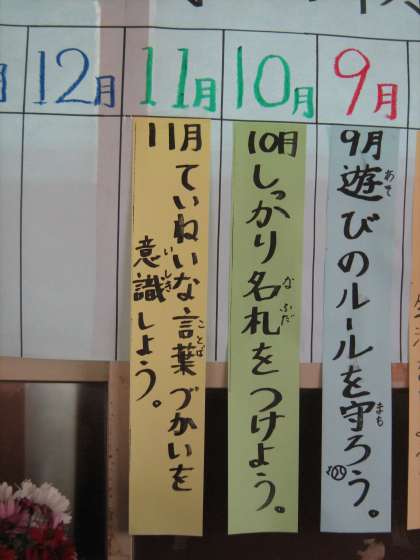 9月
10月
11月
12月
月
9月遊びのルールを守ろう。
あそ
まも
10月しっかり名札をつけよう。
なふだ
11月ていねいな言葉づかいを
ことば
意識しよう。
いしき